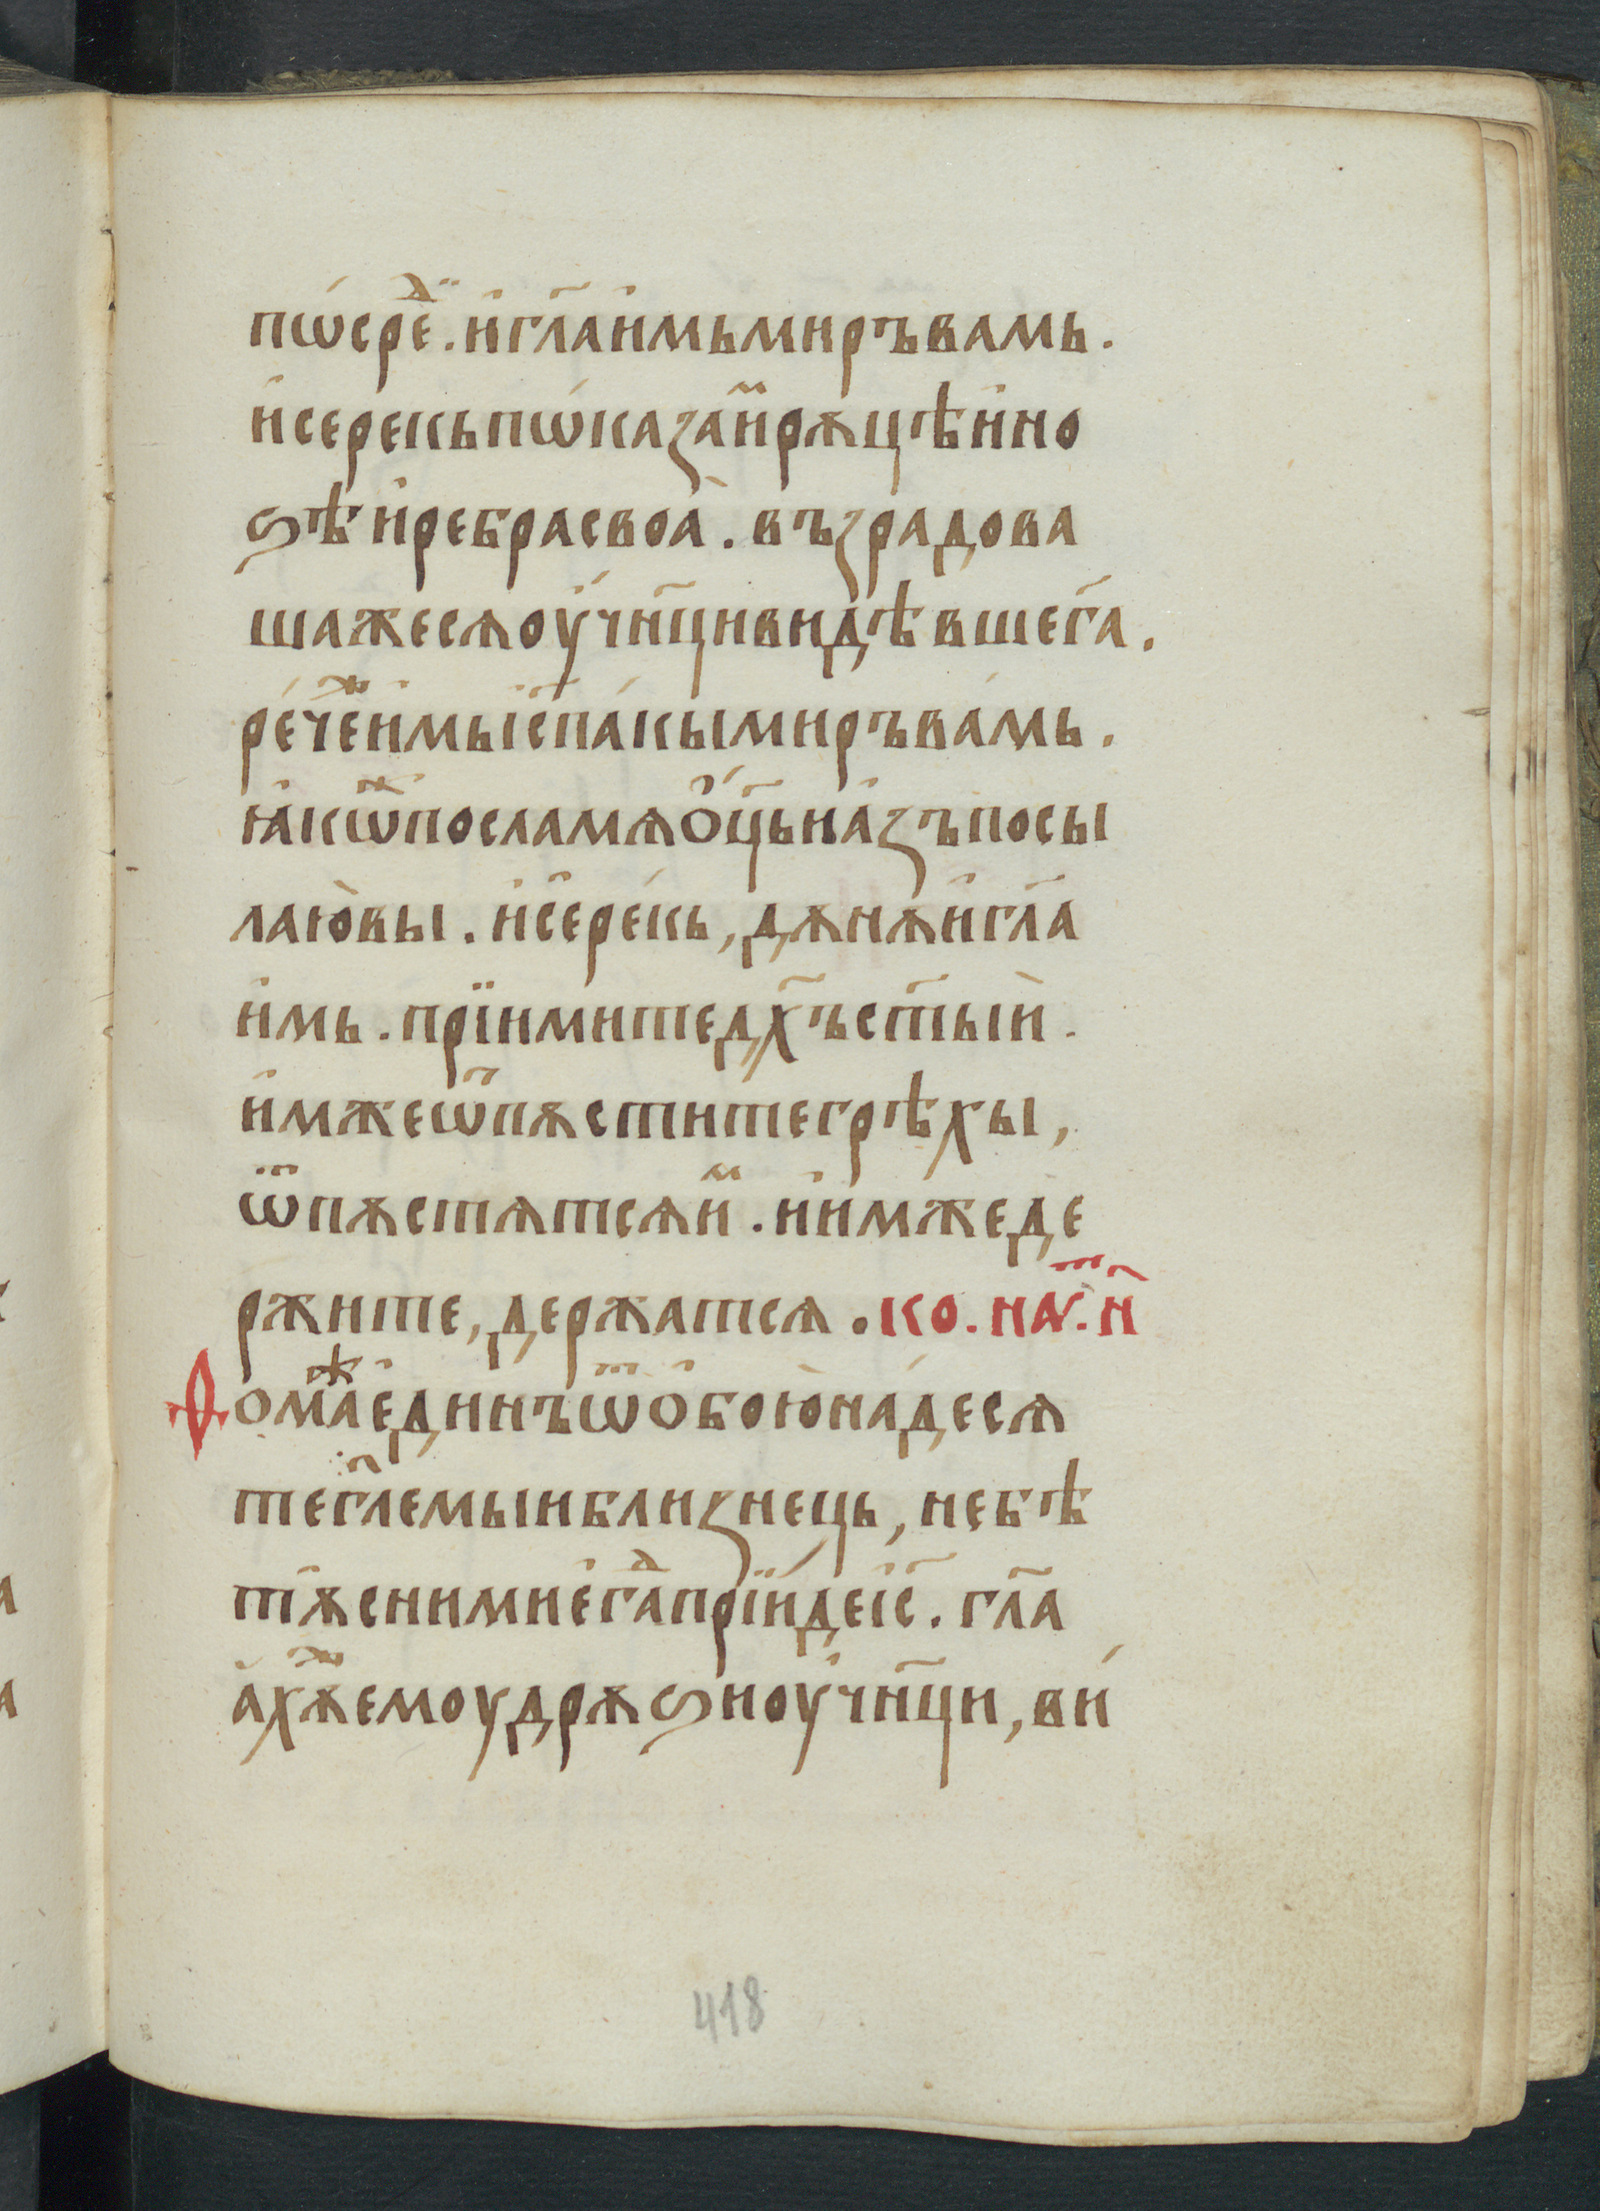 пѡ́сре́дⷷ. и҆гл҃аи҆мьмиръвамь.
и҆серекьпѡ́каза́имⷨрѫцѣи҆но
ѕѣи҆ребрасвоѧ̀. възрадова
шажесѧоу҆чн҃цивидѣвшег҃а.
ре́чеⷤи҆мьі҆с҃па́кымиръва́мь.
ꙗ҆коⷤпосламѧѻ҆ц҃ьиа҆зъпосы
лаю̀вы. и҆се҆ре́кь, дꙋнѫи҆гл҃а
и҆мь. прїимитедх҃ъст҃ый.
и҆мжеѿпѫститегрѣхы,
ѿпѫстѧтсѧиⷨ. и҆и҆мжеде
ржите, держатсѧ. ко. на у҃т. и҃
Ѳомаⷤе҆динъѿѻ҆боюна́десѧ
тег҃лемыиблизнець, небѣ
тꙋ̀снимие҆гдⷣапрїи́деі҆с҃. гл҃а
а҆хѫⷤемоудрѫѕиоу҆чн҃ци, ви́
418